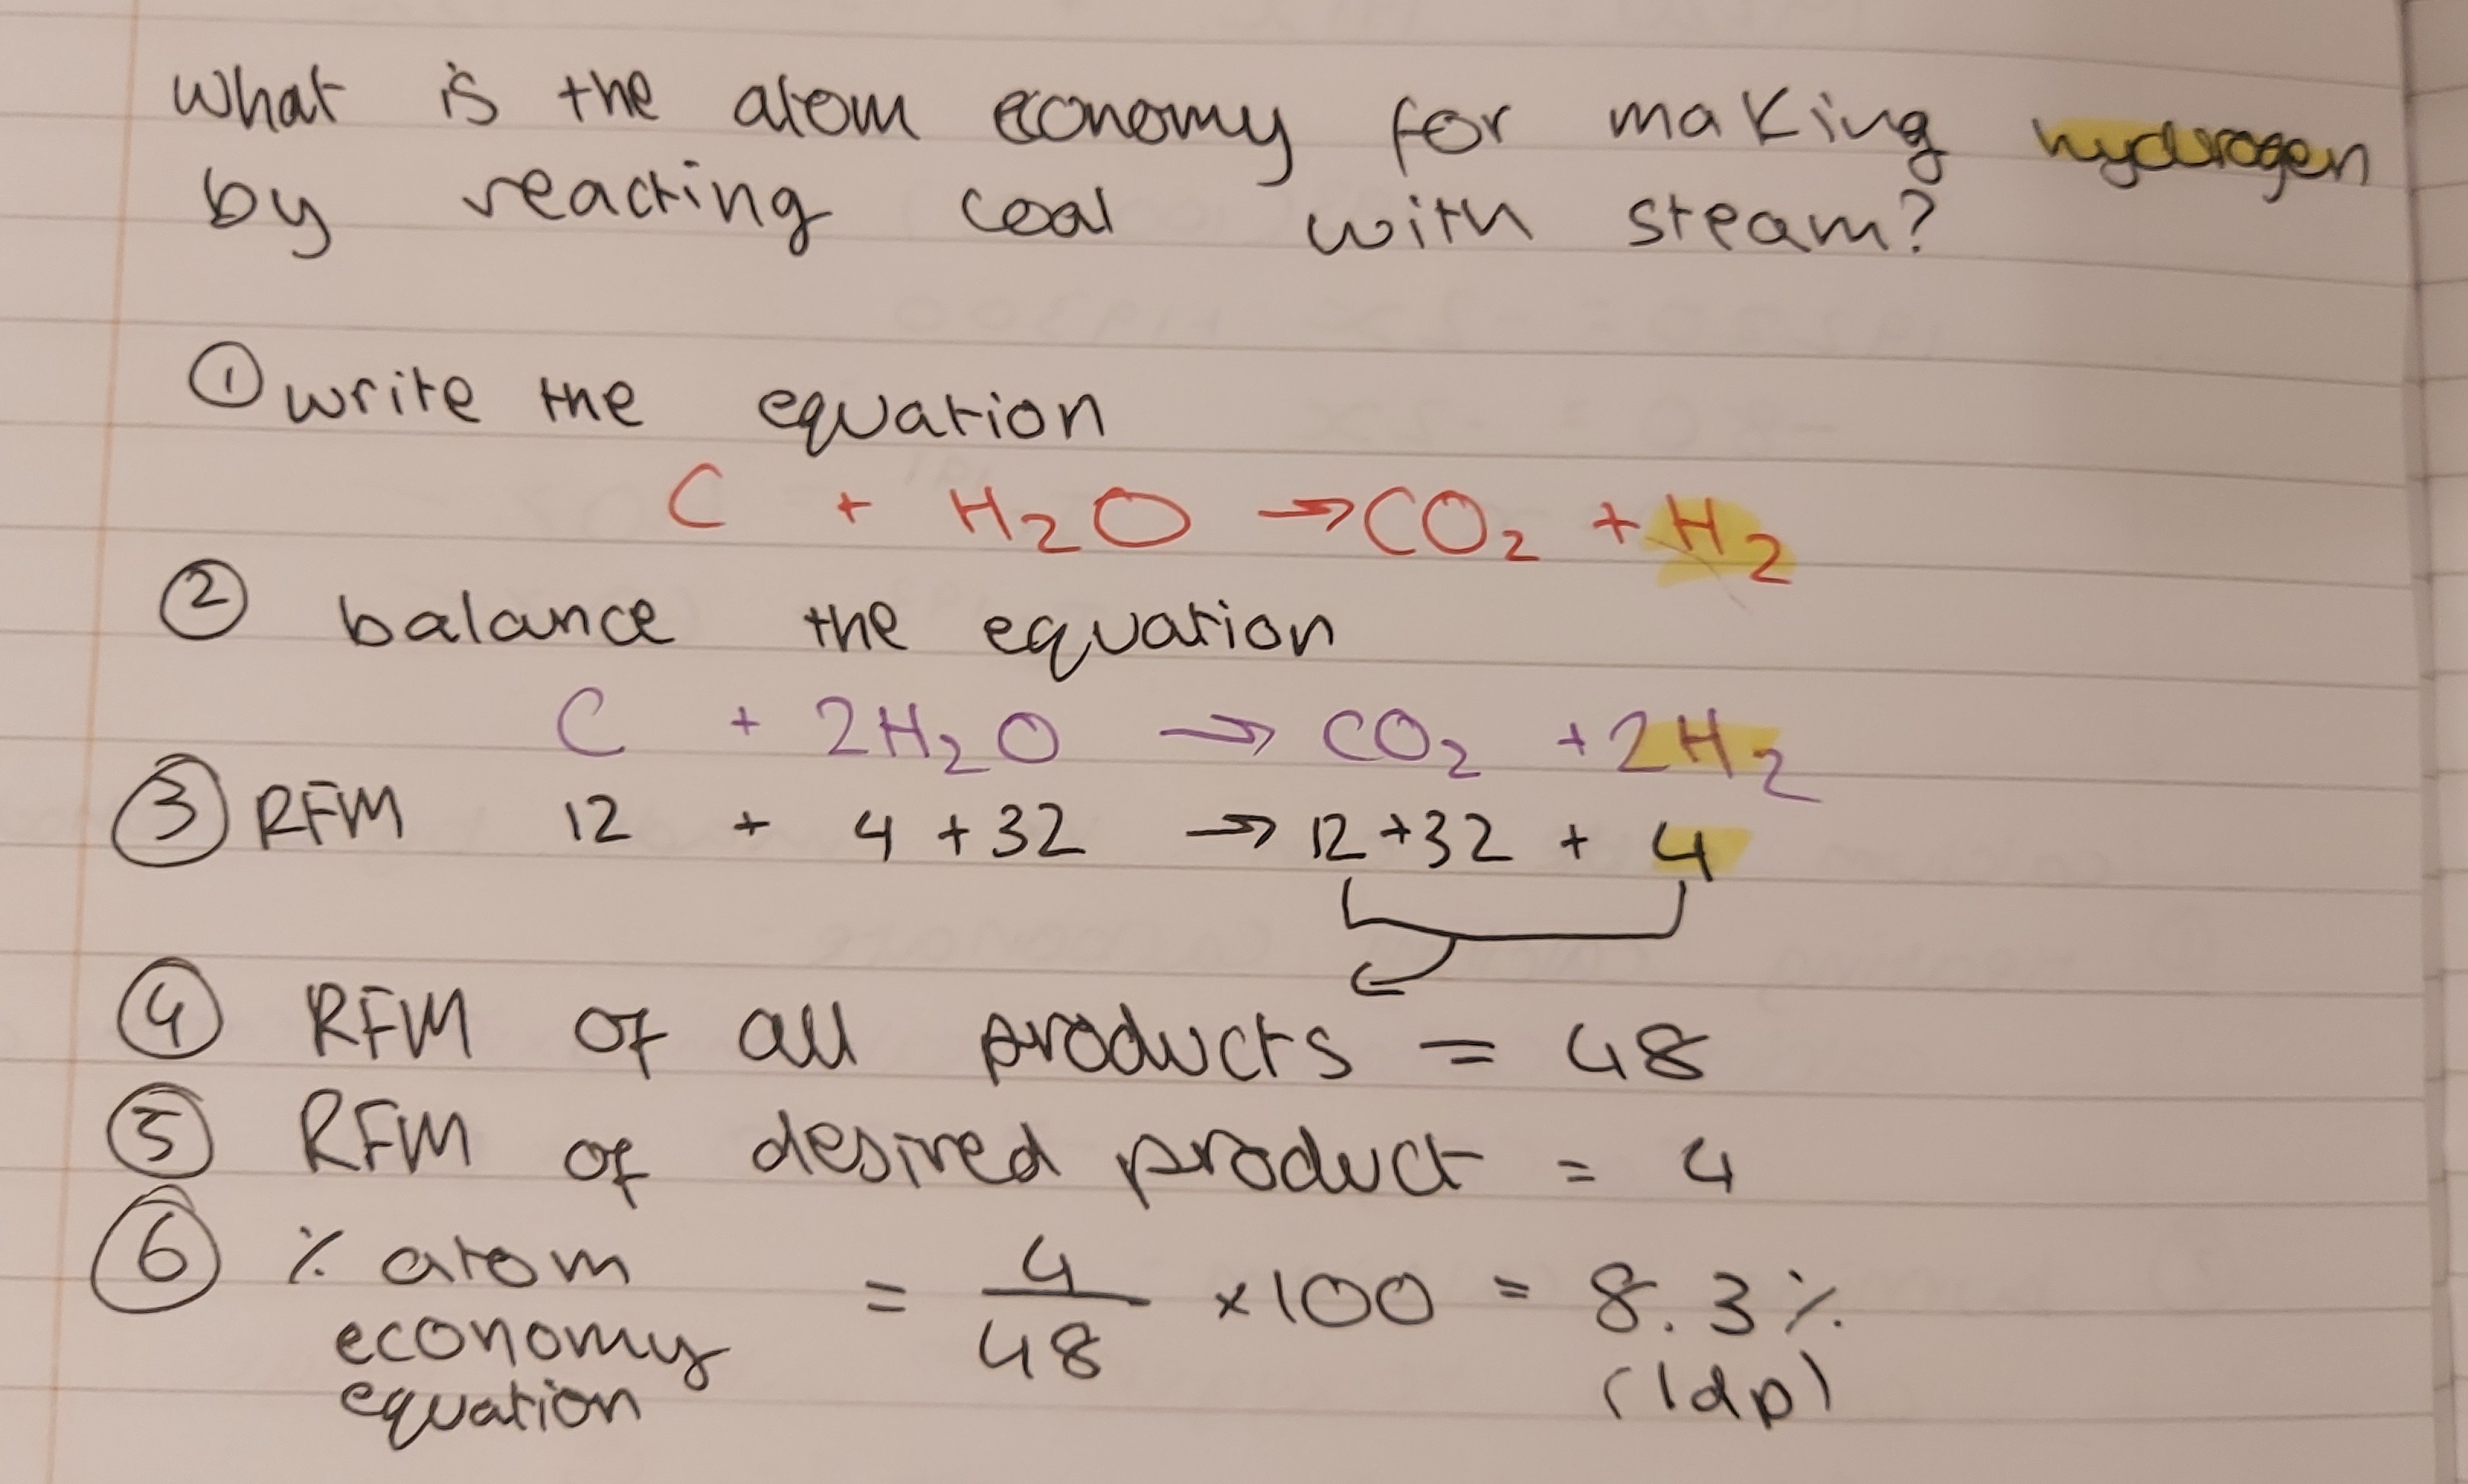 What is the atom economy for making hydrogen
by reacting coal with steam?
① write the equation
C + H₂O → CO₂ + H₂
② balance the equation
C + 2H₂O → CO₂ + 2H₂
③ RFM 12 + 4 + 32 → 12 + 32 + 4
④ RFM of all products = 48
⑤ RFM of desired product = 4
⑥ % atom economy equation = 4/48 × 100 = 8.3% (1dp)